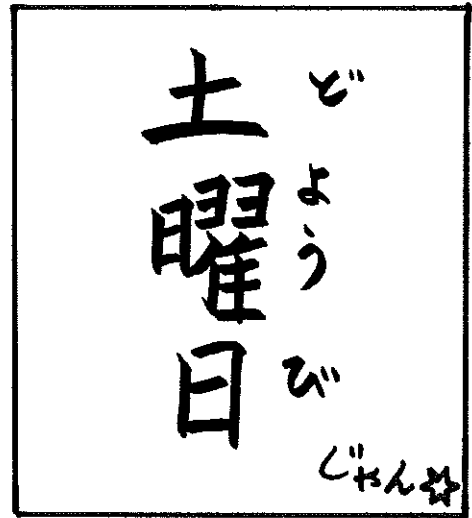 土曜日
どようび
じゃん☆